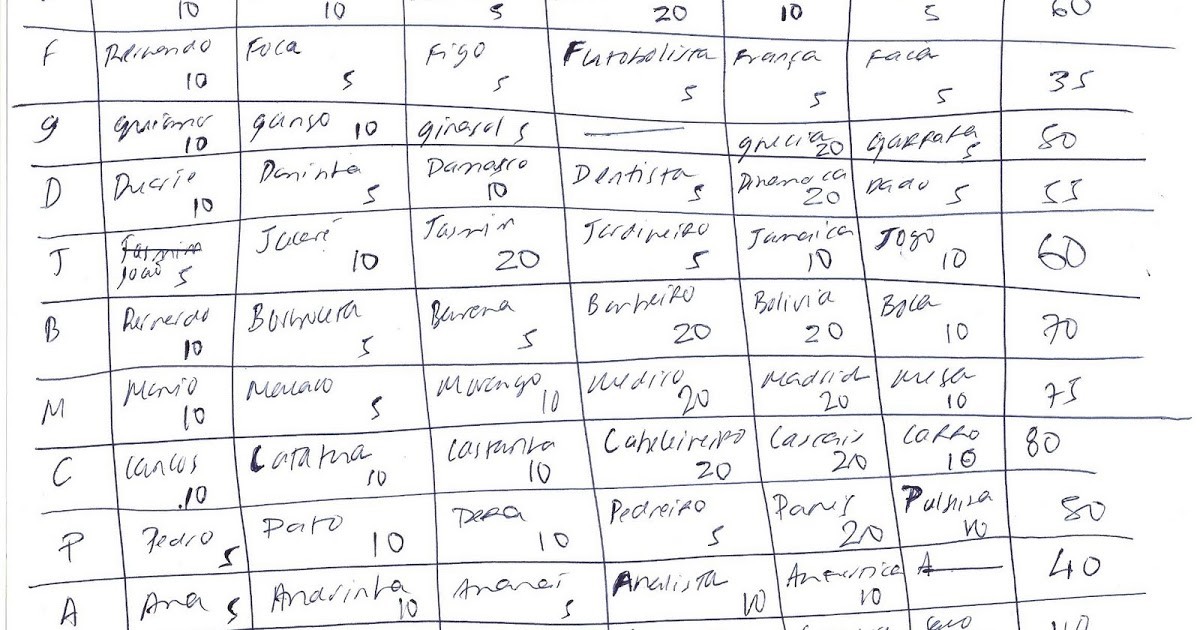 10 10 5 20 10 5 60
F Foca Figo Futobolista França Faca
10 5 5 5 5 5 35
g ganso girasol grecia garrafa
10 10 5 20 5 50
D Duarte Daninha Damasco Dentista Dinamarca Dado
10 5 10 5 20 5 55
J João Jacaré Jasmin Jardineiro Jamaica Jogo
5 10 20 5 10 10 60
B Bernardo Barbeiro Bolivia Bola
10 5 5 20 20 10 70
M Mário Macaco Morango Médico Madrid Mesa
10 5 10 20 20 10 75
C Carlos Catatua Castanha Cabeleireiro Cascais Carro
10 10 10 20 20 10 80
P Pedro Pato Pera Pedreiro Paris Pulseira
5 10 10 5 20 10 50
A Ana Andorinha Ananás Analista America A
5 10 5 10 10 40